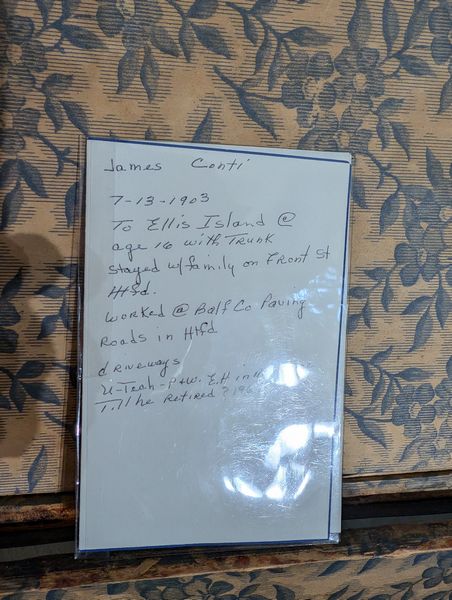 James Conti
7-13-1903
To Ellis Island @
age 16 with Trunk
stayed w/family on Front St
Htfd.
worked @ Balf Co Paving
Roads in Htfd
driveways
U-Tech - P+W. E.H in
Till he Retired ? 196